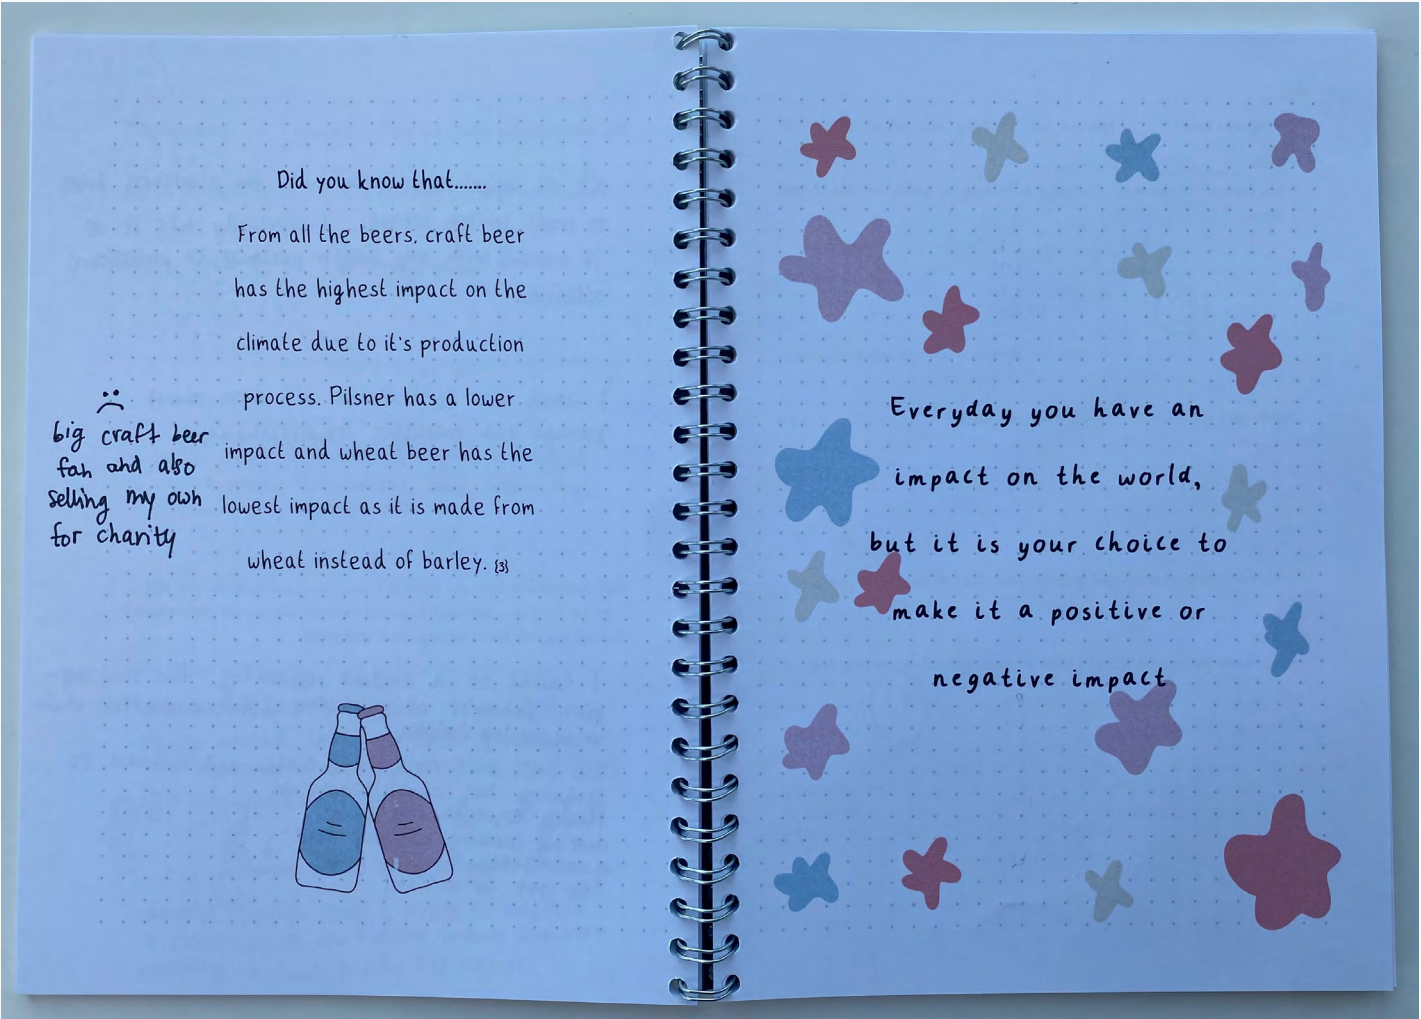 Did you know that.......
From all the beers, craft beer
has the highest impact on the
climate due to it's production
process. Pilsner has a lower
impact and wheat beer has the
lowest impact as it is made from
wheat instead of barley. {3}
:(
big craft beer
fan and also
selling my own
for charity
Everyday you have an
impact on the world,
but it is your choice to
make it a positive or
negative impact